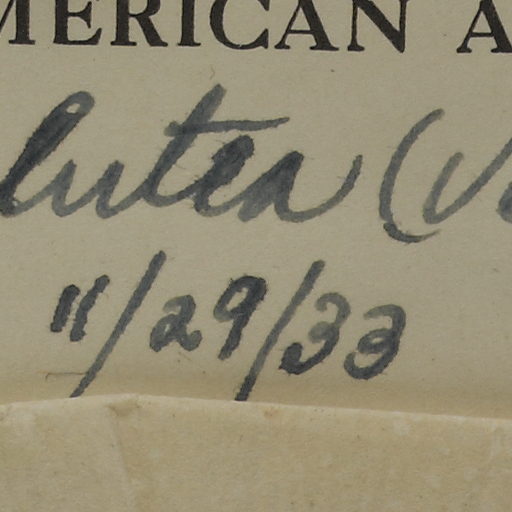 MERICAN A
lutea (V
11/29/33